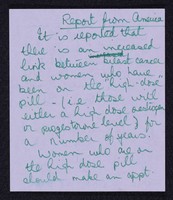 Report from America
It is reported that
there is an increased
link between breast cancer
and women who have
been on the high-dose
pill - (i.e. those with
either a high dose oestrogen
or progesterone level) for
a number of years.
Women who are on
the high dose pill
should make an appt.